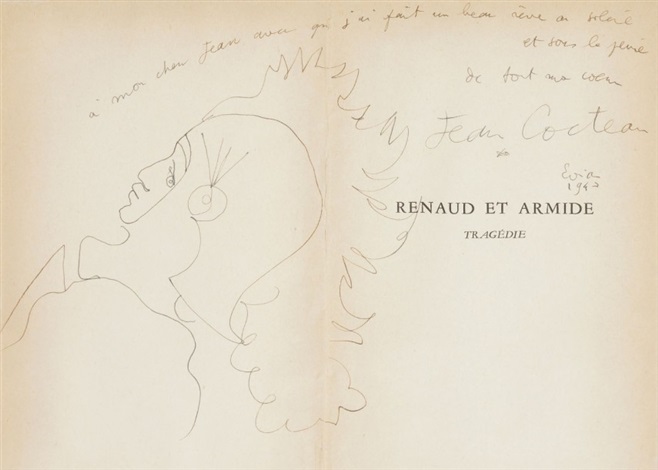 à mon cher Jean avec qui j'ai fait un beau rêve au soleil
et sous la pluie
de tout mon cœur
Jean Cocteau
*
Evian
RENAUD ET ARMIDE
TRAGÉDIE